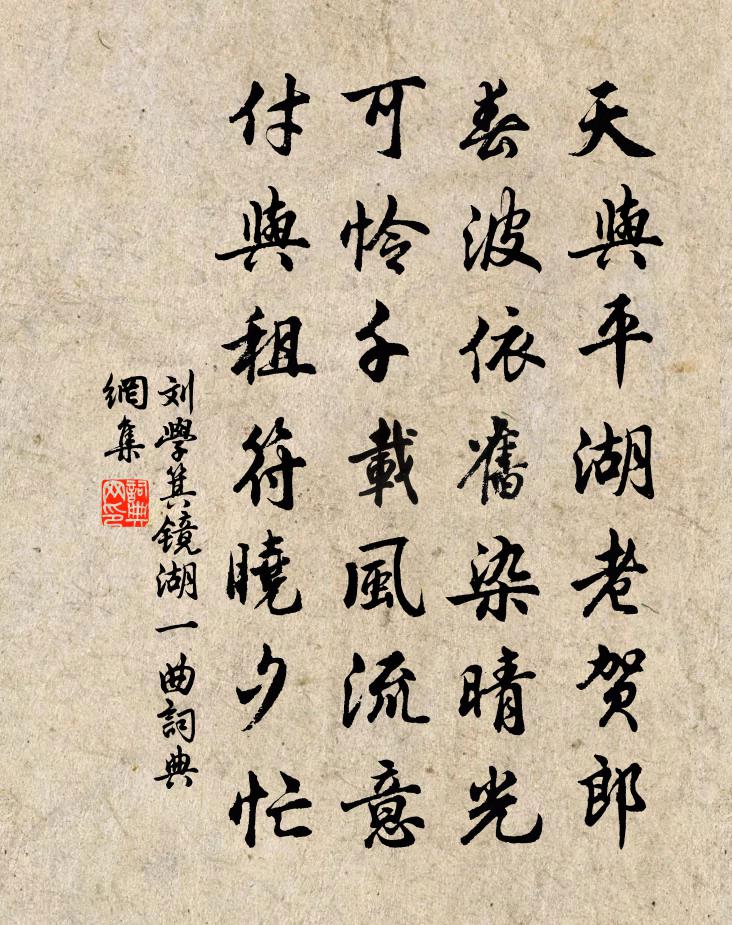 天與平湖老贺郎
春波依舊染晴光
可怜千載風流意
付與租符曉夕忙
刘學箕镜湖一曲詞典
網集
詞典
网印